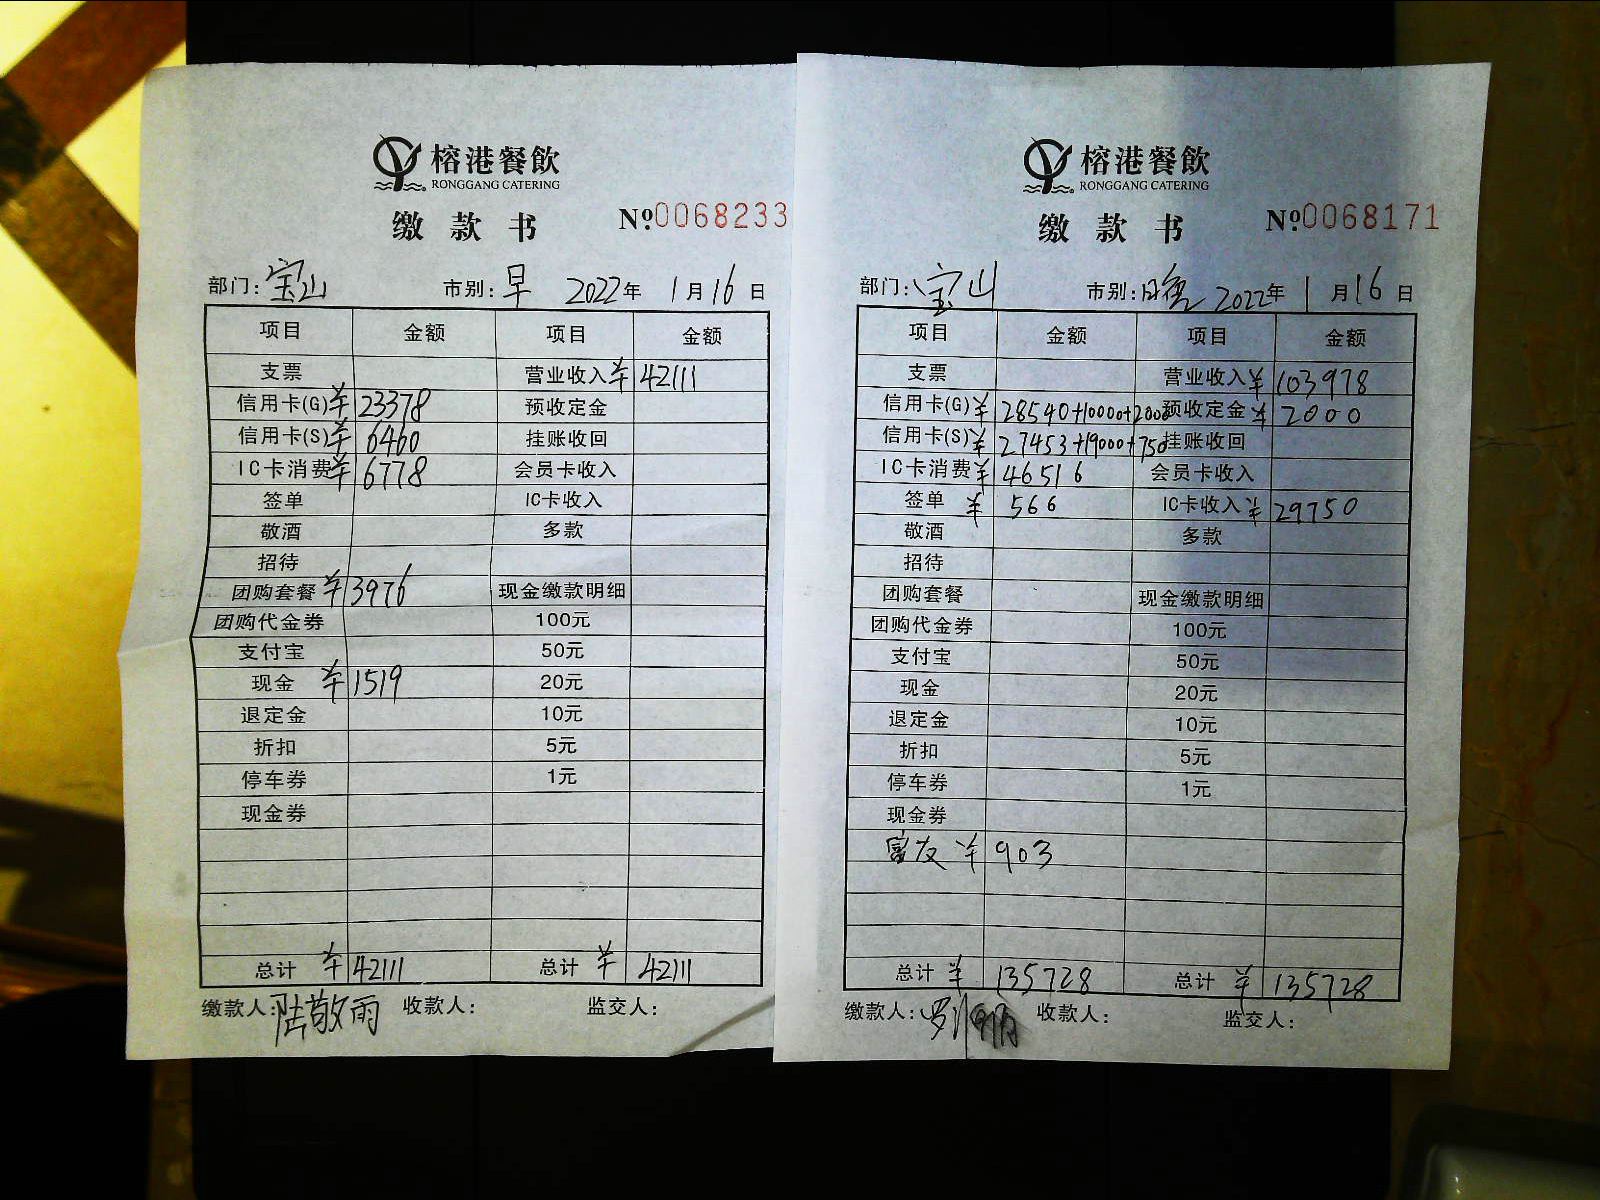 榕港餐飲
RONGGANG CATERING
缴款书 №0068233
部门:宝山 市别:早 2022年1月16日
项目 金额 项目 金额
支票 营业收入 ¥42111
信用卡(G) ¥23378 预收定金
信用卡(S) ¥6460 挂账收回
IC卡消费 ¥6778 会员卡收入
签单 IC卡收入
敬酒 多款
招待
团购套餐 ¥3976 现金缴款明细
团购代金券 100元
支付宝 50元
现金 ¥1519 20元
退定金 10元
折扣 5元
停车券 1元
现金券
总计 ¥42111 总计 ¥42111
缴款人:陆敬雨 收款人: 监交人:
榕港餐飲
RONGGANG CATERING
缴款书 №0068171
部门:宝山 市别:晚 2022年1月16日
项目 金额 项目 金额
支票 营业收入 ¥103978
信用卡(G) ¥28540+10000+2000 预收定金 ¥2000
信用卡(S) ¥27453+19000+750 挂账收回
IC卡消费 ¥46516 会员卡收入
签单 ¥566 IC卡收入 ¥29750
敬酒 多款
招待
团购套餐 现金缴款明细
团购代金券 100元
支付宝 50元
现金 20元
退定金 10元
折扣 5元
停车券 1元
现金券
富友 ¥903
总计 ¥135728 总计 ¥135728
缴款人: 收款人: 监交人: